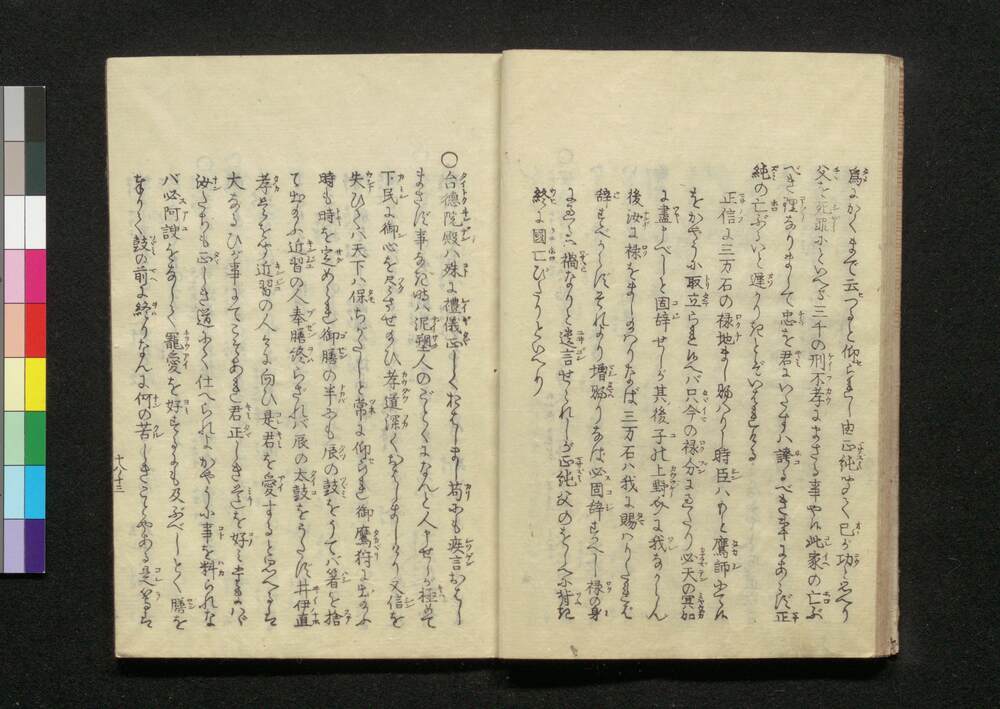 爲にかくまで云つると仰せられし由正純はかく己が功にほこり
父を死罪にといへる三千の刑不孝にまさる事やハ此家の亡ぶ
べき理なりまして忠を君にいたすハ誇るべき事にあらだ正
純の亡ぶらいと遲かりきとぞいはれける
正信に三万石の禄地まし賜ハりし時臣ハもと鷹師にてはべり
をかやうに取立られ候へバ只今の禄分にすぎたり必天の冥加
に盡なべしと固辞せしが其後子の上野介に我なからん
後汝に禄をましたまハりなば三万石ハ我に賜ハりたれば
辞すべからだそれより增賜りなば必固辞すべし禄の身
にあまるハ禍なりと遺言せられしが正純父のをしへに背き
終に國亡びたりといへり
〇台德院殿ハ殊に禮儀正しくおはしまし苟にも疾言おはし
まさだ事なき時ハ泥塑人のごとくになんと人申せしが極めて
下民に御心を尽させたまひ孝道深くおはしましけり又信を
失ひてハ天下ハ保ちがたしと常に仰られ御鷹狩に出たまふ
時も時を定められ御膳の半にも辰の鼓をうてバ箸を捨
て出たまふ近習の人奉膳終らざれバ辰の太鼓をうたず井伊直
孝是をきゝ近習の人々に向ひ是君を愛するとおもへるは
大なるひが事にてこそあれ君正しき道を好ませたまへば
汝たちも正しき道にて仕へられよかやうに事を料られな
バ必阿諛をなして寵愛を好むよりも及ぶべしとく膳を
奉りて鼓の前に終りなんに何の苦しきことやある是らは
十八 十三